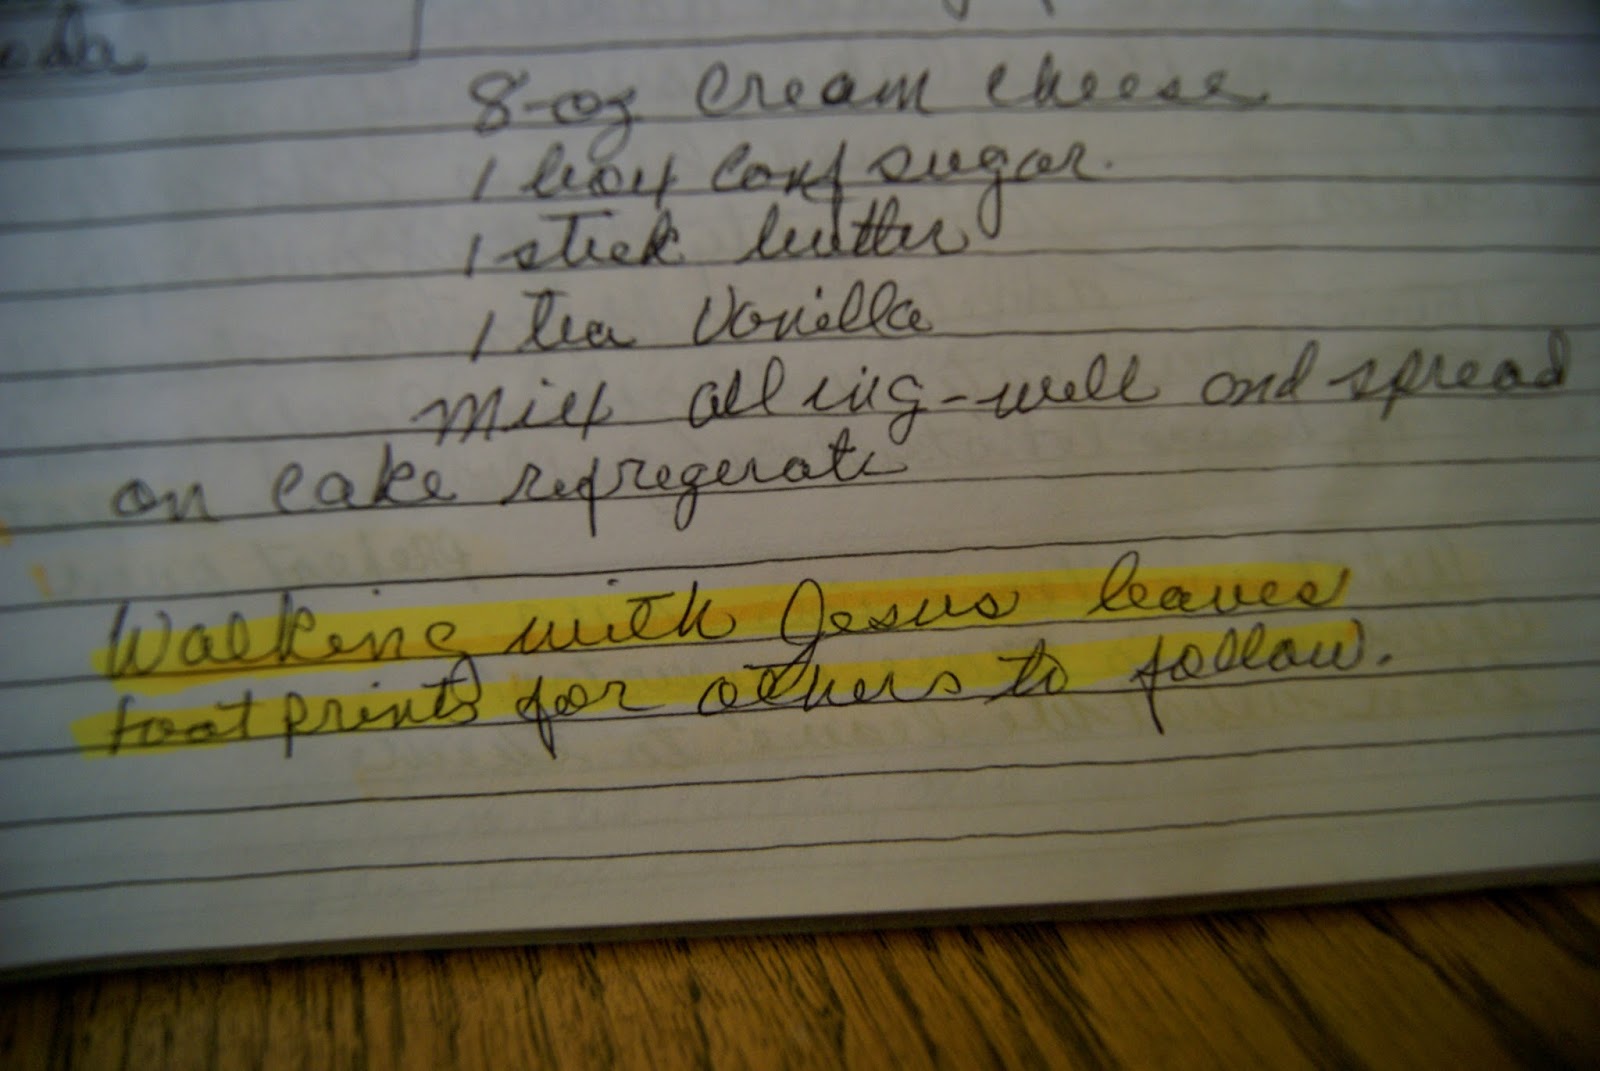 8-oz Cream cheese
1 box Conf sugar.
1 stick butter
1 tea Vanilla
Mix all ing-well and spread
on cake refregerate
Walking with Jesus leaves
foot prints for others to follow.